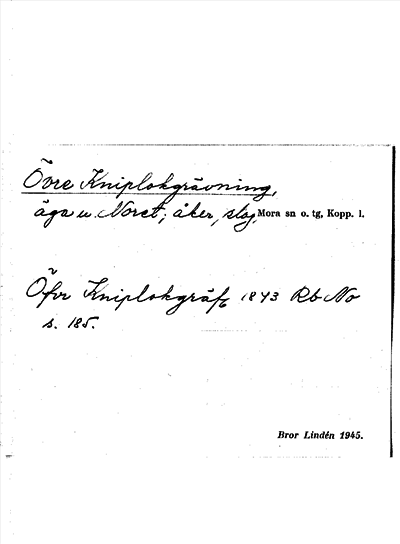 Övre Kniplokgrävning,
äga u. Noret; åker, slog, Mora sn o. tg, Kopp. l.
Öfvr Kniplokgräfg 1843 Rb No
s. 185.
Bror Lindén 1945.